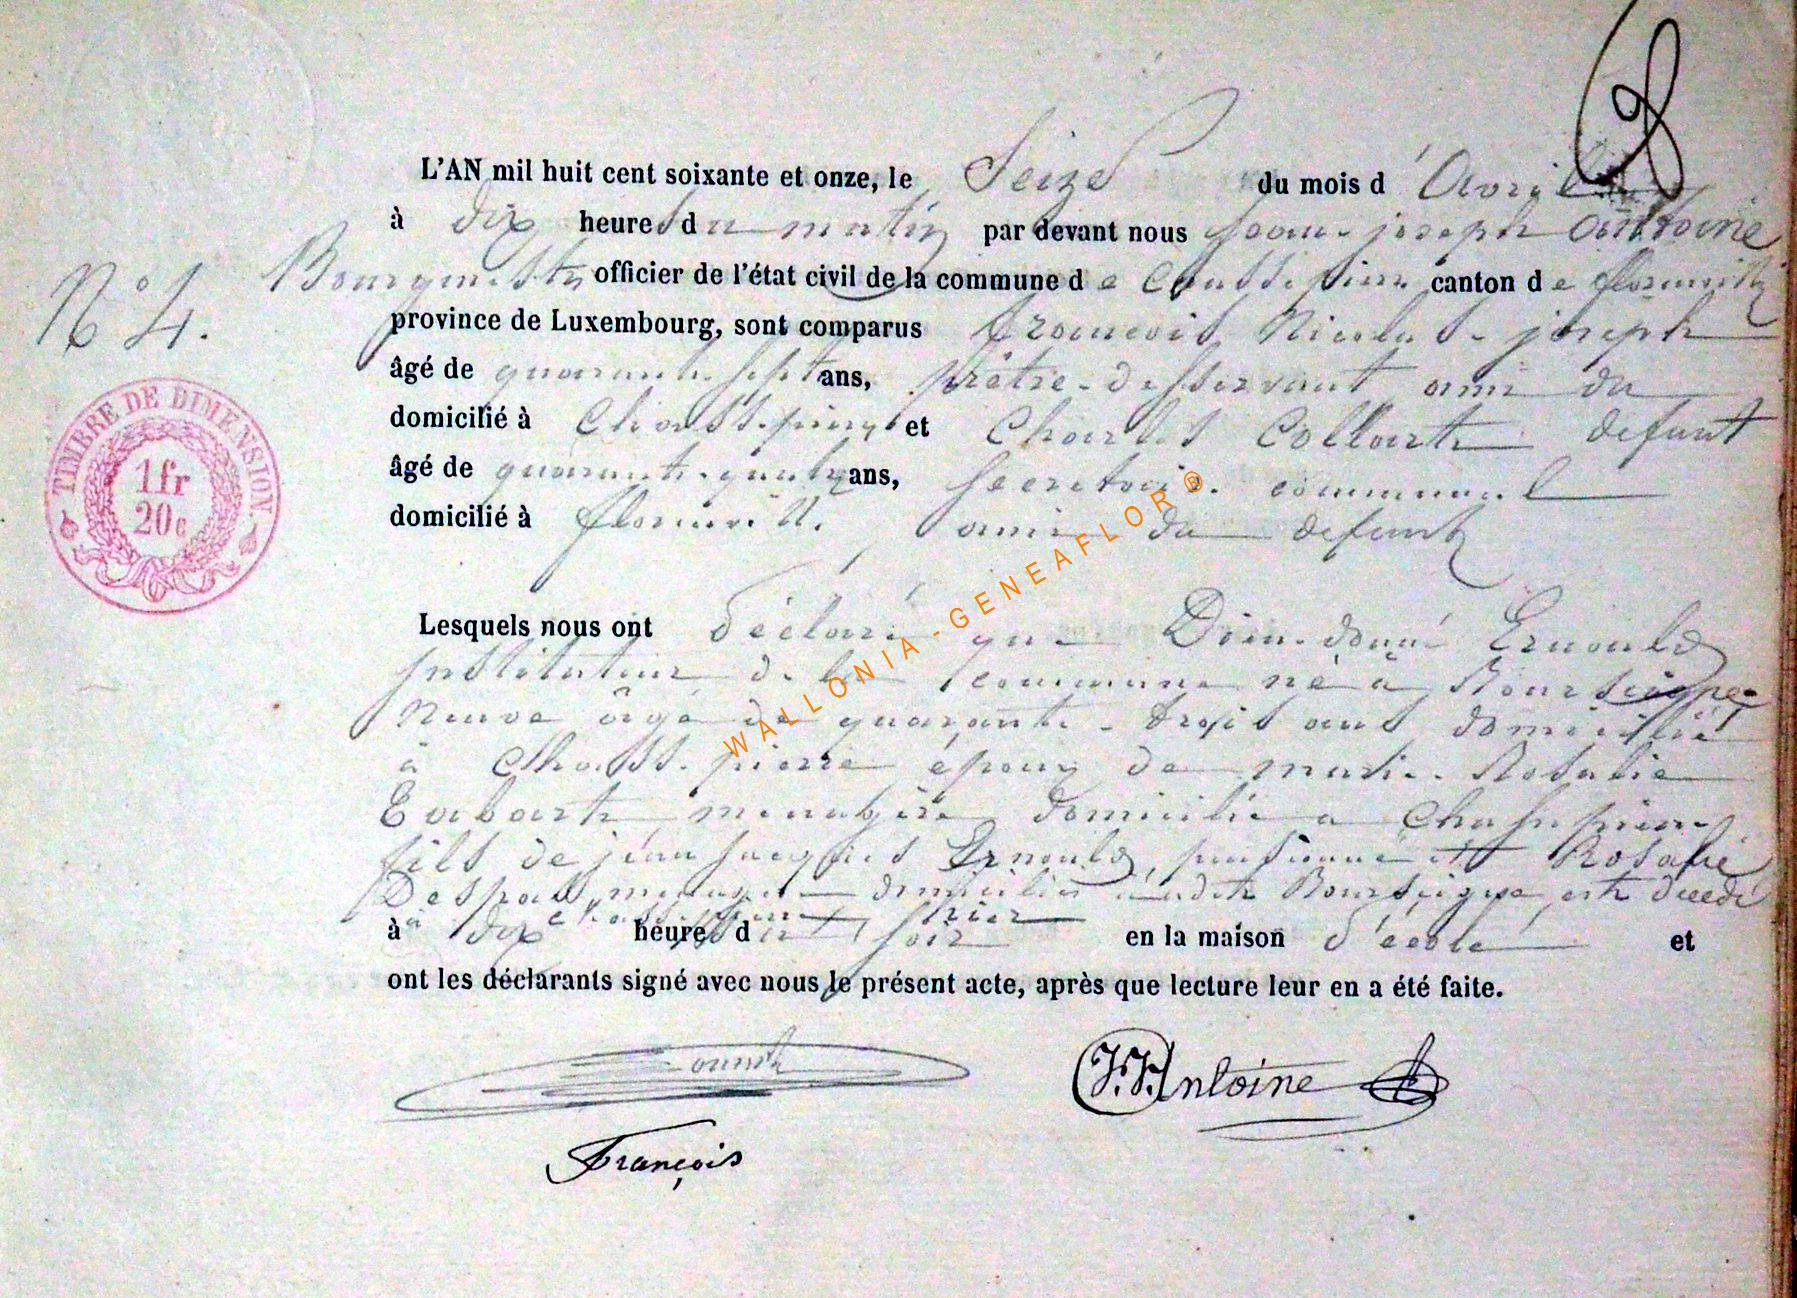 L'AN mil huit cent soixante et onze, le Seize du mois d'Avril
à dix heures du matin par devant nous Jean-joseph Antoine
N° 4. Bourgmestre officier de l'état civil de la commune de Chassepierre canton de florenville
province de Luxembourg, sont comparus François Nicolas-joseph
âgé de quarante-sept ans, prêtre-desservant ami du
domicilié à Chassepierre et Charles Collart defunt
âgé de quarante-quatre ans, secretaire communal
domicilié à florenville ami du defunt
Lesquels nous ont déclaré que Dieu-donné Ernould
instituteur de la commune né à Bourseigne
Neuve âgé de quarante-trois ans domicilié
à Chassepierre époux de marie Rosalie
menagère domicilié a Chassepierre
fils de jean jacques Ernould, pensionné et Rosalie
Despas menagère domicilié audit Bourseigne, est decedé
à Chassepierre hier
à dix heures du soir en la maison d'école et
ont les déclarants signé avec nous le présent acte, après que lecture leur en a été faite.
J.J. Antoine
François
TIMBRE DE DIMENSION
1 fr
20 c
WALLONIA-GENEAFLOR®